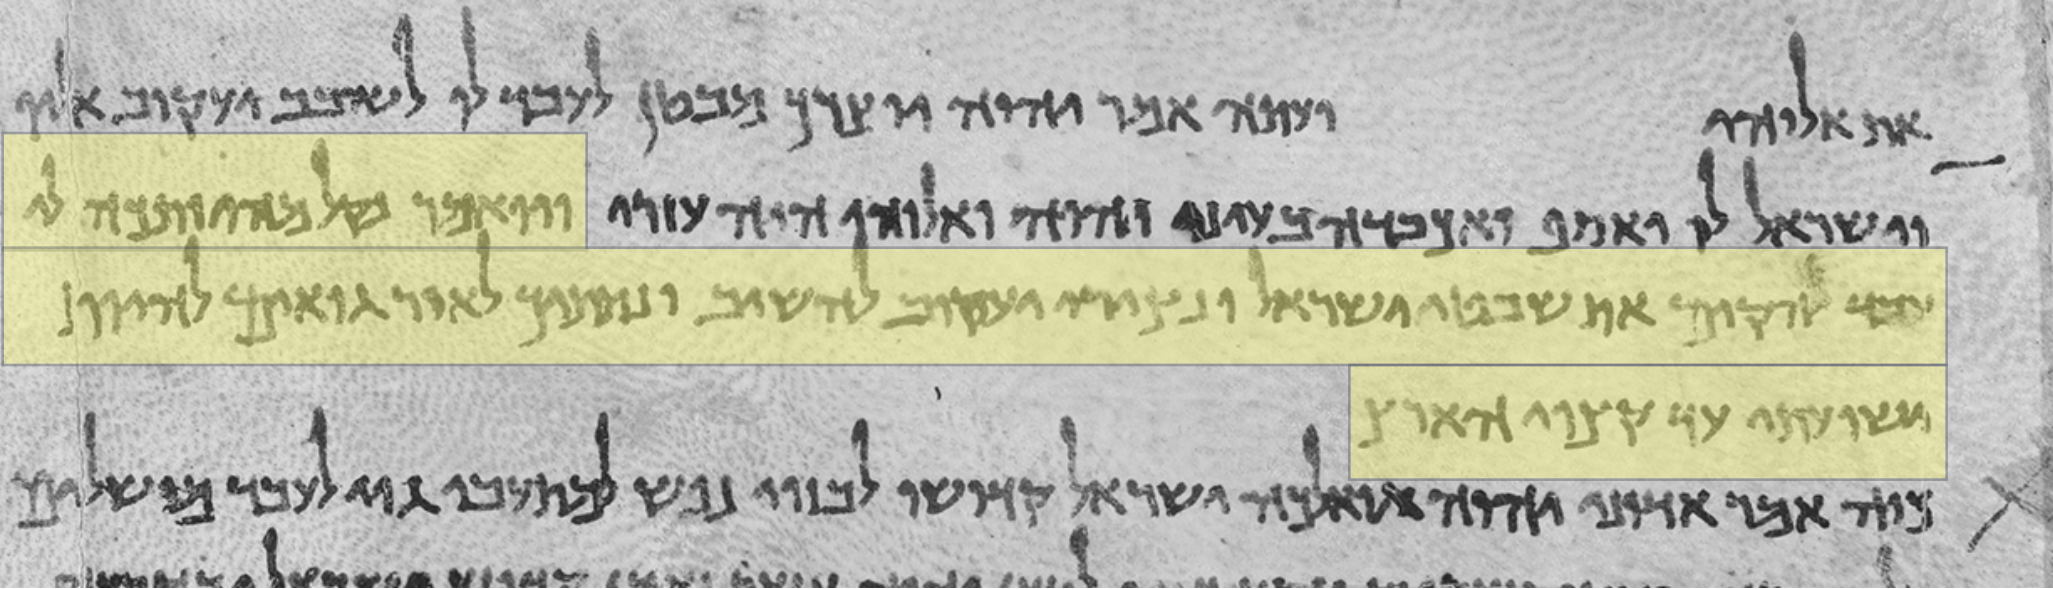 את אלוהי ועתה אמר יהוה יוצרך מבטן לעבד לו לשבב יעקוב אליו
וישראל לו יאסף ואכבדה בעיני יהוה ואלוהי היה עזרי ויואמר נקל מהיותכה לי
עבד להקים את שבטי ישראל ונצירי יעקוב להשיב ונתתיך לאור גואים להיות
ישועתי עד קצוי הארץ
כוה אמר אדוני יהוה גואלכה ישראל קדושו לבזוי נפש למתעבי גוי לעבד מושלים